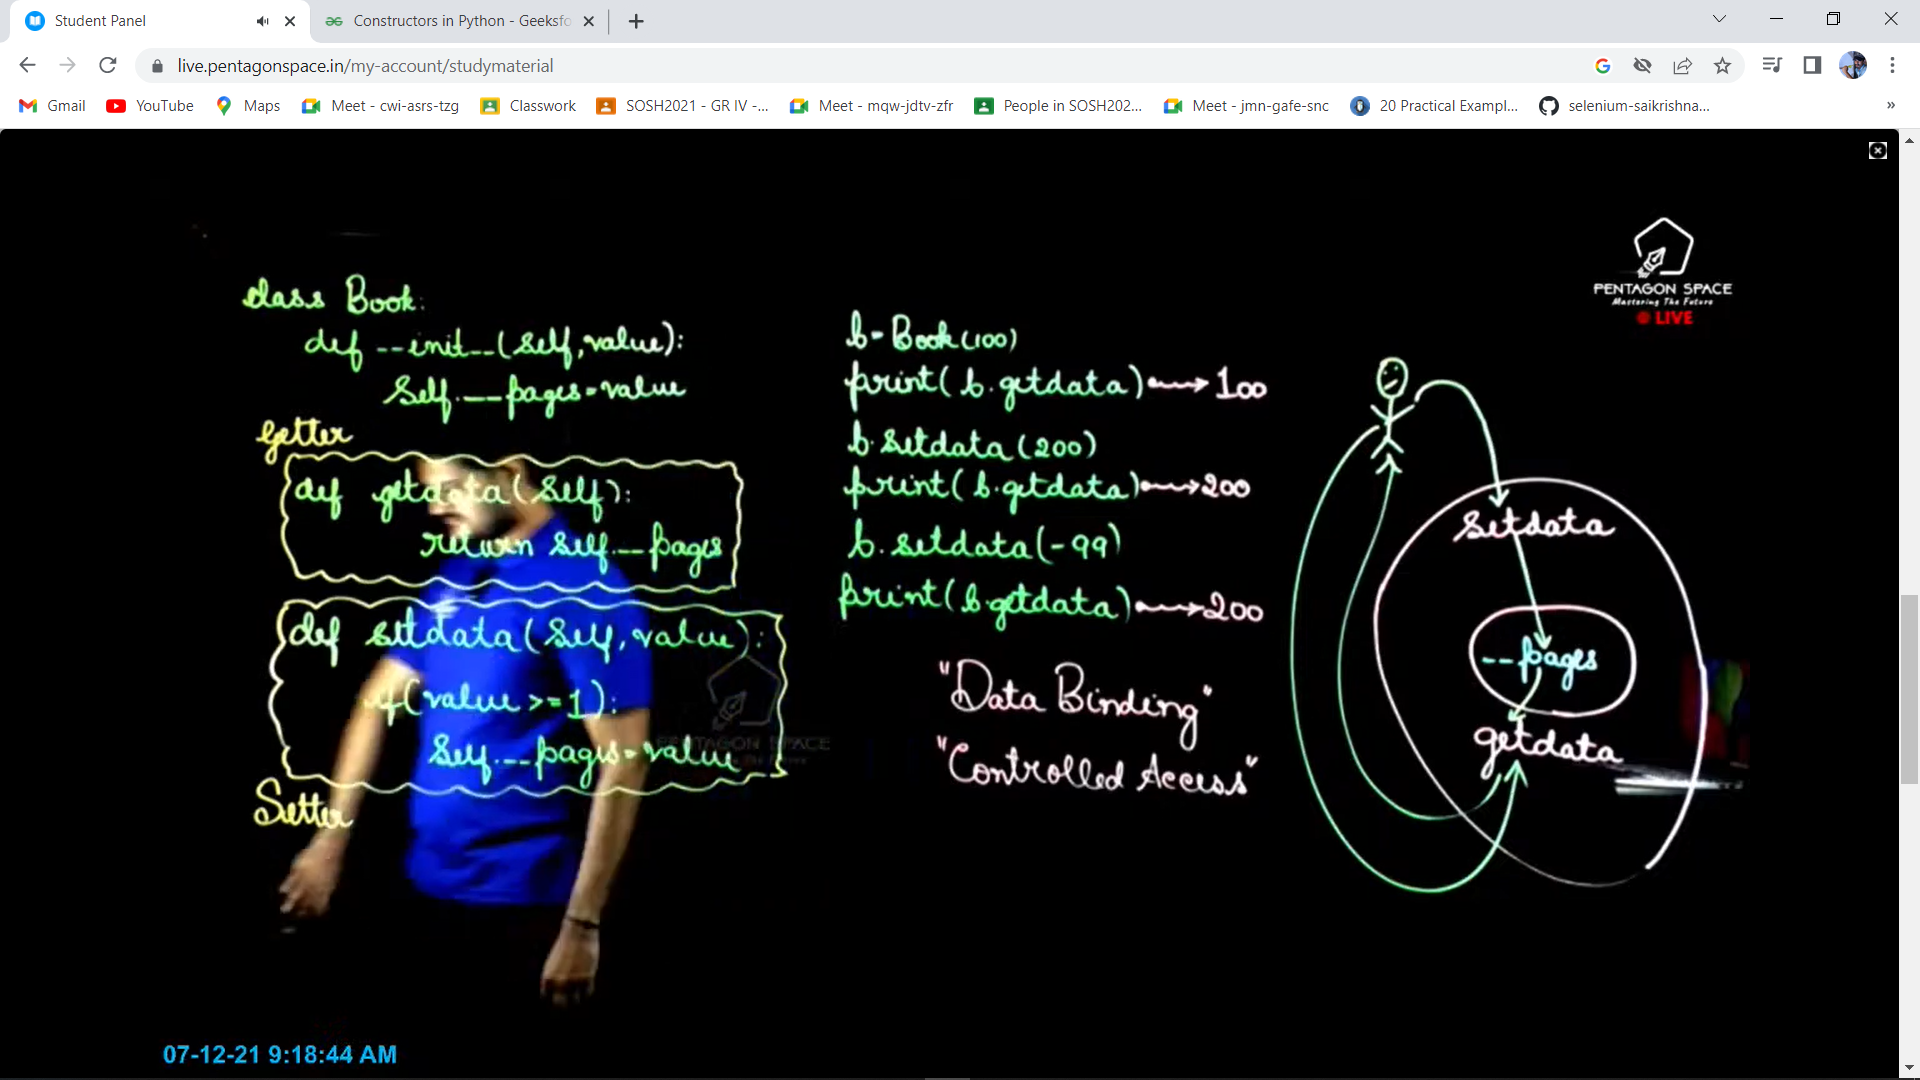 Student Panel
Constructors in Python - Geeksfo
live.pentagonspace.in/my-account/studymaterial
Gmail
YouTube
Maps
Meet - cwi-asrs-tzg
Classwork
SOSH2021 - GR IV -...
Meet - mqw-jdtv-zfr
People in SOSH202...
Meet - jmn-gafe-snc
20 Practical Exampl...
selenium-saikrishna...
»
PENTAGON SPACE
Mastering The Future
LIVE
class Book:
def __init__(self,value):
Self.__pages=value
Getter
def getdata(self):
return self.__pages
def setdata(self,value):
if(value >=1):
Self.__pages=value
Setter
b=Book(100)
print( b.getdata) → 100
b.setdata(200)
print( b.getdata) → 200
b.setdata(-99)
print(b.getdata) → 200
"Data Binding"
"Controlled Access"
setdata
--pages
getdata
PENTAGON SPACE
07-12-21 9:18:44 AM